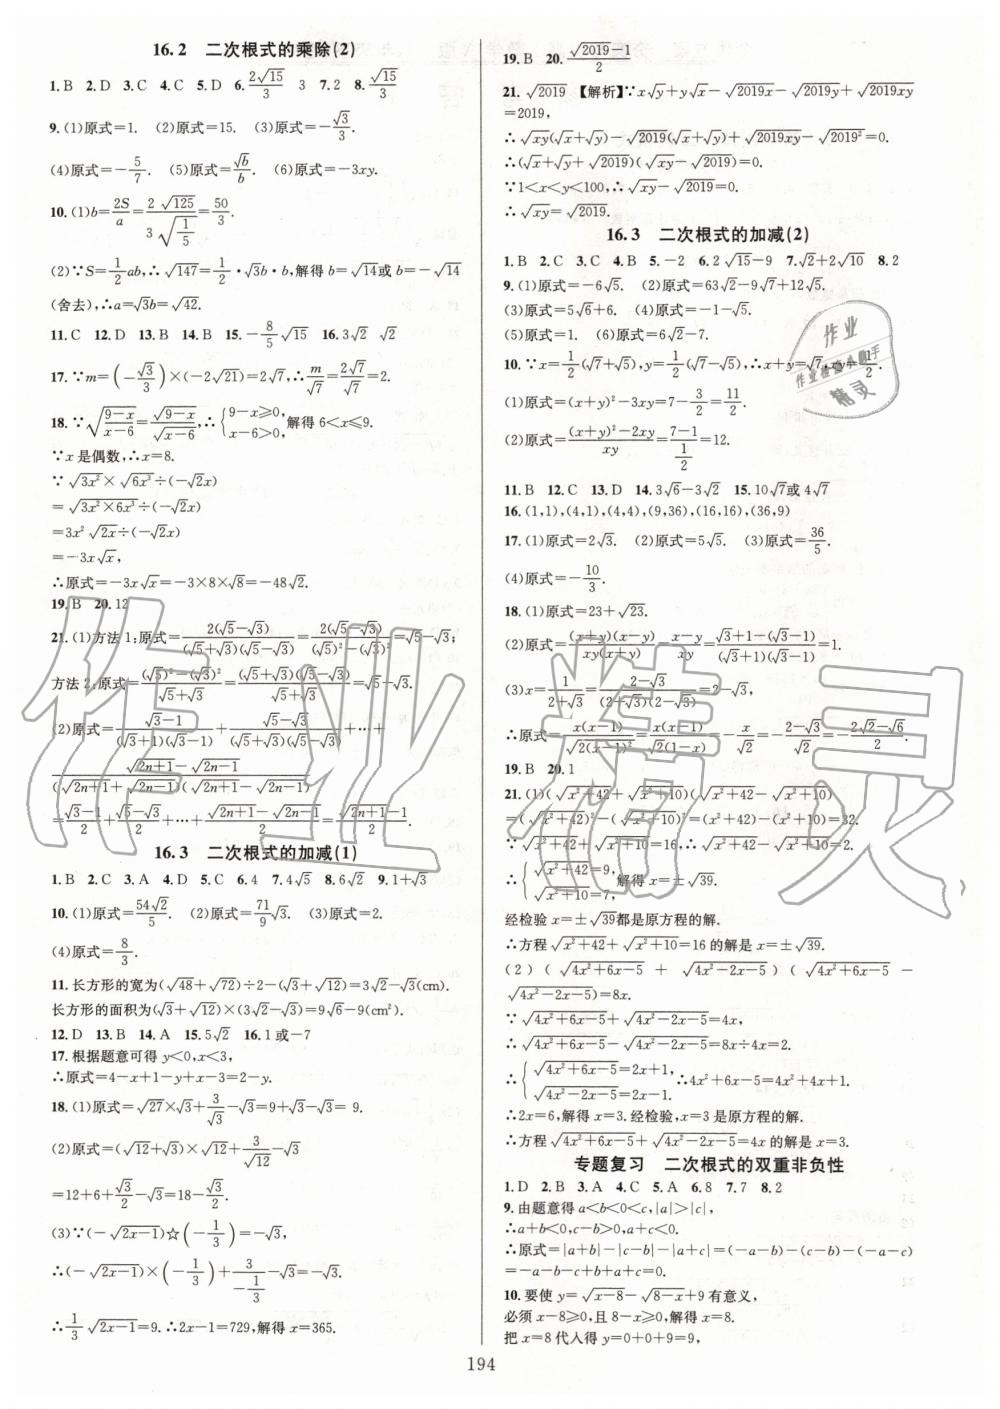 16.2 二次根式的乘除(2)
1.B 2.D 3.C 4.C 5.D 6.2√15/3 3 7.2 8.√15/3
9.(1)原式=1. (2)原式=15. (3)原式=-√3/3.
(4)原式=-5/7. (5)原式=√b/b. (6)原式=-3xy.
10.(1)b=2S/a=2√125/(3√(1/5))=50/3.
(2)∵S=1/2ab,∴√147=1/2·√3b·b,解得b=√14或b=-√14
(舍去),∴a=√3b=√42.
11.C 12.D 13.B 14.B 15.-8/5√15 16.3√2 √2
17.∵m=(-√3/3)×(-2√21)=2√7,∴m/√7=2√7/√7=2.
18.∵√((9-x)/(x-6))=√(9-x)/√(x-6),∴{9-x≥0, x-6>0,解得6<x≤9.
∵x是偶数,∴x=8.
∵√(3x²)×√(6x³)÷(-√2x)
=√(3x²×6x³)÷(-√2x)
=3x²√(2x)÷(-√2x)
=-3x√x,
∴原式=-3x√x=-3×8×√8=-48√2.
19.B 20.12
21.(1)方法1:原式=2(√5-√3)/((√5+√3)(√5-√3))=2(√5-√3)/((√5)²-(√3)²)=√5-√3;
方法2:原式=((√5)²-(√3)²)/(√5+√3)=(√5+√3)(√5-√3)/(√5+√3)=√5-√3.
(2)原式=(√3-1)/((√3+1)(√3-1))+(√5-√3)/((√5+√3)(√5-√3))+…+
(√(2n+1)-√(2n-1))/((√(2n+1)+√(2n-1))(√(2n+1)-√(2n-1)))
=(√3-1)/2+(√5-√3)/2+…+(√(2n+1)-√(2n-1))/2=(√(2n+1)-1)/2.
16.3 二次根式的加减(1)
1.B 2.C 3.A 4.D 5.C 6.4 7.4√5 8.6√2 9.1+√3
10.(1)原式=54√2/5. (2)原式=71/9√3. (3)原式=2.
(4)原式=8/3.
11.长方形的宽为(√48+√72)÷2-(√3+√12)=3√2-√3(cm).
长方形的面积为(√3+√12)×(3√2-√3)=9√6-9(cm²).
12.D 13.B 14.A 15.5√2 16.1或-7
17.根据题意可得y<0,x<3,
∴原式=4-x+1-y+x-3=2-y.
18.(1)原式=√27×√3+3/√3-√3=9+√3-√3=9.
(2)原式=(√12+√3)×√12+3/√12-√3
=12+6+√3/2-√3=18-√3/2.
(3)∵(-√(2x-1))☆(-1/3)=-√3,
∴(-√(2x-1))×(-1/3)+3/(-1/3)-√3=-√3.
∴1/3√(2x-1)=9.∴2x-1=729,解得x=365.
19.B 20.(√2019-1)/2
21.√2019 【解析】∵x√y+y√x-√(2019x)-√(2019y)+√(2019xy)
=2019,
∴√xy(√x+√y)-√2019(√x+√y)+√(2019xy)-√2019²=0.
∴(√x+√y+√2019)(√xy-√2019)=0.
∵1<x<y<100,∴√xy-√2019=0.
∴√xy=√2019.
16.3 二次根式的加减(2)
1.B 2.C 3.C 4.B 5.-2 6.2√15-9 7.√2+2√10 8.2
9.(1)原式=-6√5. (2)原式=63√2-9√7+12√5.
(3)原式=5√6+6. (4)原式=-1-√5.
(5)原式=1. (6)原式=6√2-7.
10.∵x=1/2(√7+√5),y=1/2(√7-√5),∴x+y=√7,xy=1/2.
(1)原式=(x+y)²-3xy=7-3/2=11/2.
(2)原式=((x+y)²-2xy)/xy=(7-1)/(1/2)=12.
11.B 12.C 13.D 14.3√6-3√2 15.10√7或4√7
16.(1,1),(4,1),(4,4),(9,36),(16,16),(36,9)
17.(1)原式=2√3. (2)原式=5√5. (3)原式=36/5.
(4)原式=-10/3.
18.(1)原式=23+√23.
(2)原式=(x+y)(x-y)/(xy(x+y))=(x-y)/xy=(√3+1-(√3-1))/((√3+1)(√3-1))=1.
(3)x=1/(2+√3)=(2-√3)/((2+√3)(2-√3))=2-√3,
∴原式=x(x-1)/√(2(x-1)²)=x(x-1)/(√2(1-x))=-x/√2=-(2-√3)/√2=-(2√2-√6)/2.
19.B 20.1
21.(1)(√(x²+42)+√(x²+10))(√(x²+42)-√(x²+10))
=(√(x²+42))²-(√(x²+10))²=(x²+42)-(x²+10)=32.
∵√(x²+42)+√(x²+10)=16,∴√(x²+42)-√(x²+10)=2.
∴{√(x²+42)=9, √(x²+10)=7, 解得x=±√39.
经检验x=±√39都是原方程的解.
∴方程√(x²+42)+√(x²+10)=16的解是x=±√39.
(2)(√(4x²+6x-5)+√(4x²-2x-5))(√(4x²+6x-5)-
√(4x²-2x-5))=8x.
∵√(4x²+6x-5)+√(4x²-2x-5)=4x,
∴√(4x²+6x-5)-√(4x²-2x-5)=2.
∴{√(4x²+6x-5)=2x+1, √(4x²-2x-5)=2x-1,∴4x²+6x-5=4x²+4x+1.
∴2x=6,解得x=3.经检验,x=3是原方程的解.
∴方程√(4x²+6x-5)+√(4x²-2x-5)=4x的解是x=3.
专题复习 二次根式的双重非负性
1.D 2.B 3.A 4.C 5.A 6.8 7.7 8.2
9.由题意得a<b<0<c,|a|>|c|,
∴a+b<0,c-b>0,a+c<0.
∴原式=|a+b|-|c-b|-|a+c|=(-a-b)-(c-b)-(-a-c)
=-a-b-c+b+a+c=0.
10.要使y=√(x-8)-√(8-x)+9有意义,
必须x-8≥0,且8-x≥0,解得x=8.
把x=8代入得y=0+0+9=9,
194
作业精灵
作业
作业检查小助手
精灵